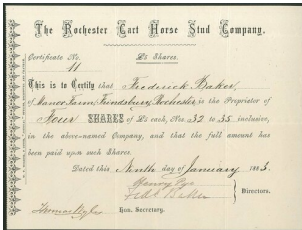 The Rochester Cart Horse Stud Company.
Certificate No. £1 Shares.
11
This is to Certify that Frederick Baker,
of Manor Farm, Frindsbury, Rochester is the Proprietor of
Four SHARES of £1 each, Nos. 32 to 35 inclusive,
in the above-named Company, and that the full amount has
been paid upon such Shares.
Dated this Ninth day of January 188
Henry Pye
Directors.
Hon. Secretary.